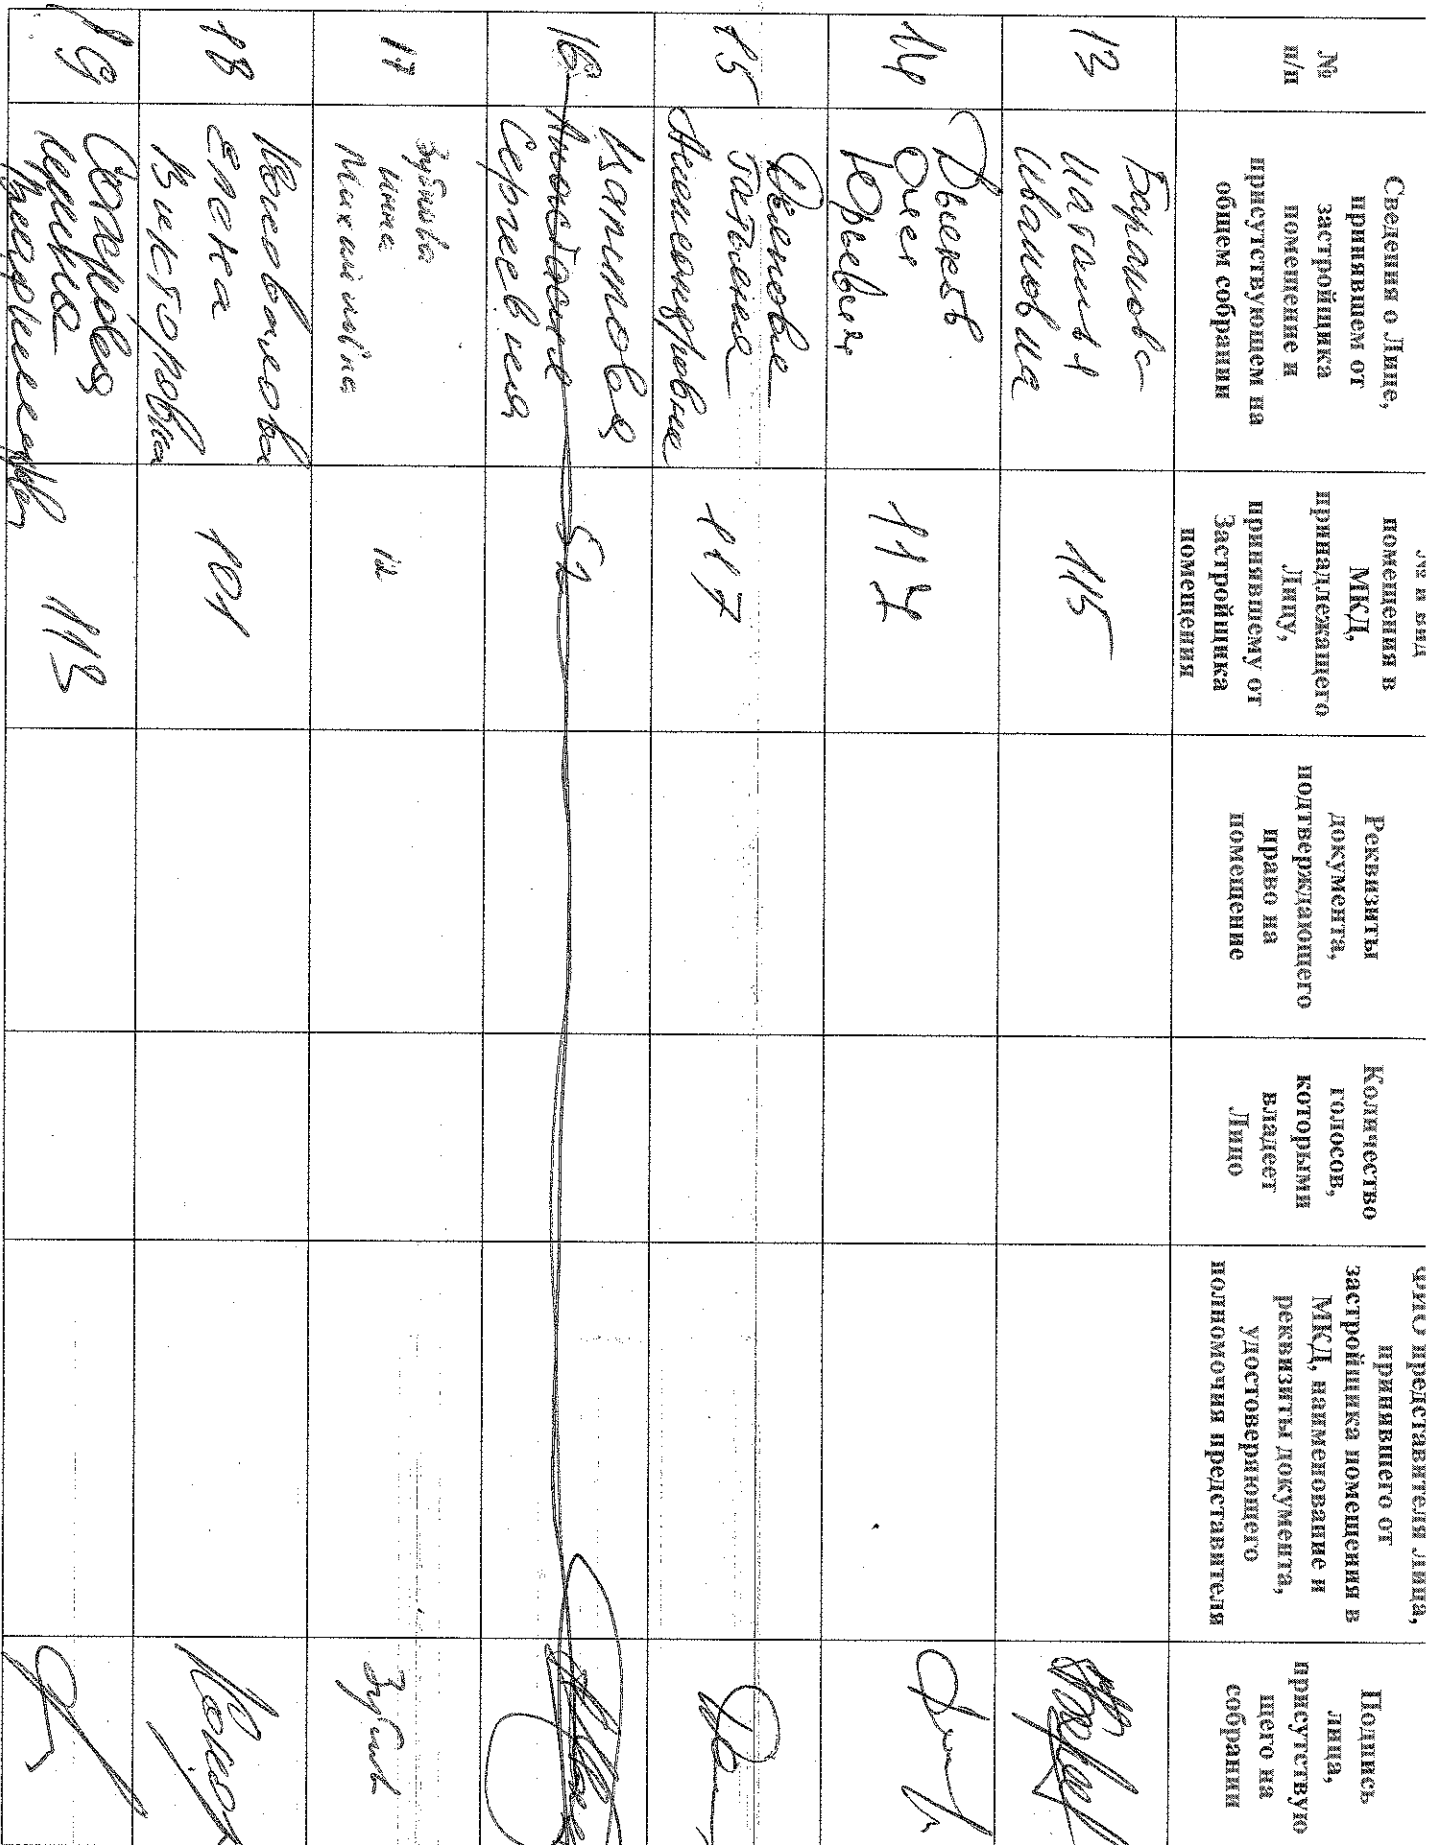 №
п/п
Сведения о Лице,
принявшем от
застройщика
помещение и
присутствующем на
общем собрании
№ и вид
помещения в
МКД,
принадлежащего
Лицу,
принявшему от
Застройщика
помещения
Реквизиты
документа,
подтверждающего
право на
помещение
Количество
голосов,
которыми
владеет
Лицо
ФИО представителя Лица,
принявшего от
застройщика помещения в
МКД, наименование и
реквизиты документа,
удостоверяющего
полномочия представителя
Подпись
лица,
присутствую
щего на
собрании
13
Баранова
Наталья
Ивановна
115
14
Олег
Юрьевич
117
15
Татьяна
Александровна
117
16
Капитова
Анастасия
Сергеевна
52
17
Зубова
Инна
Михайловна
12
18
Елена
Викторовна
101
19
113